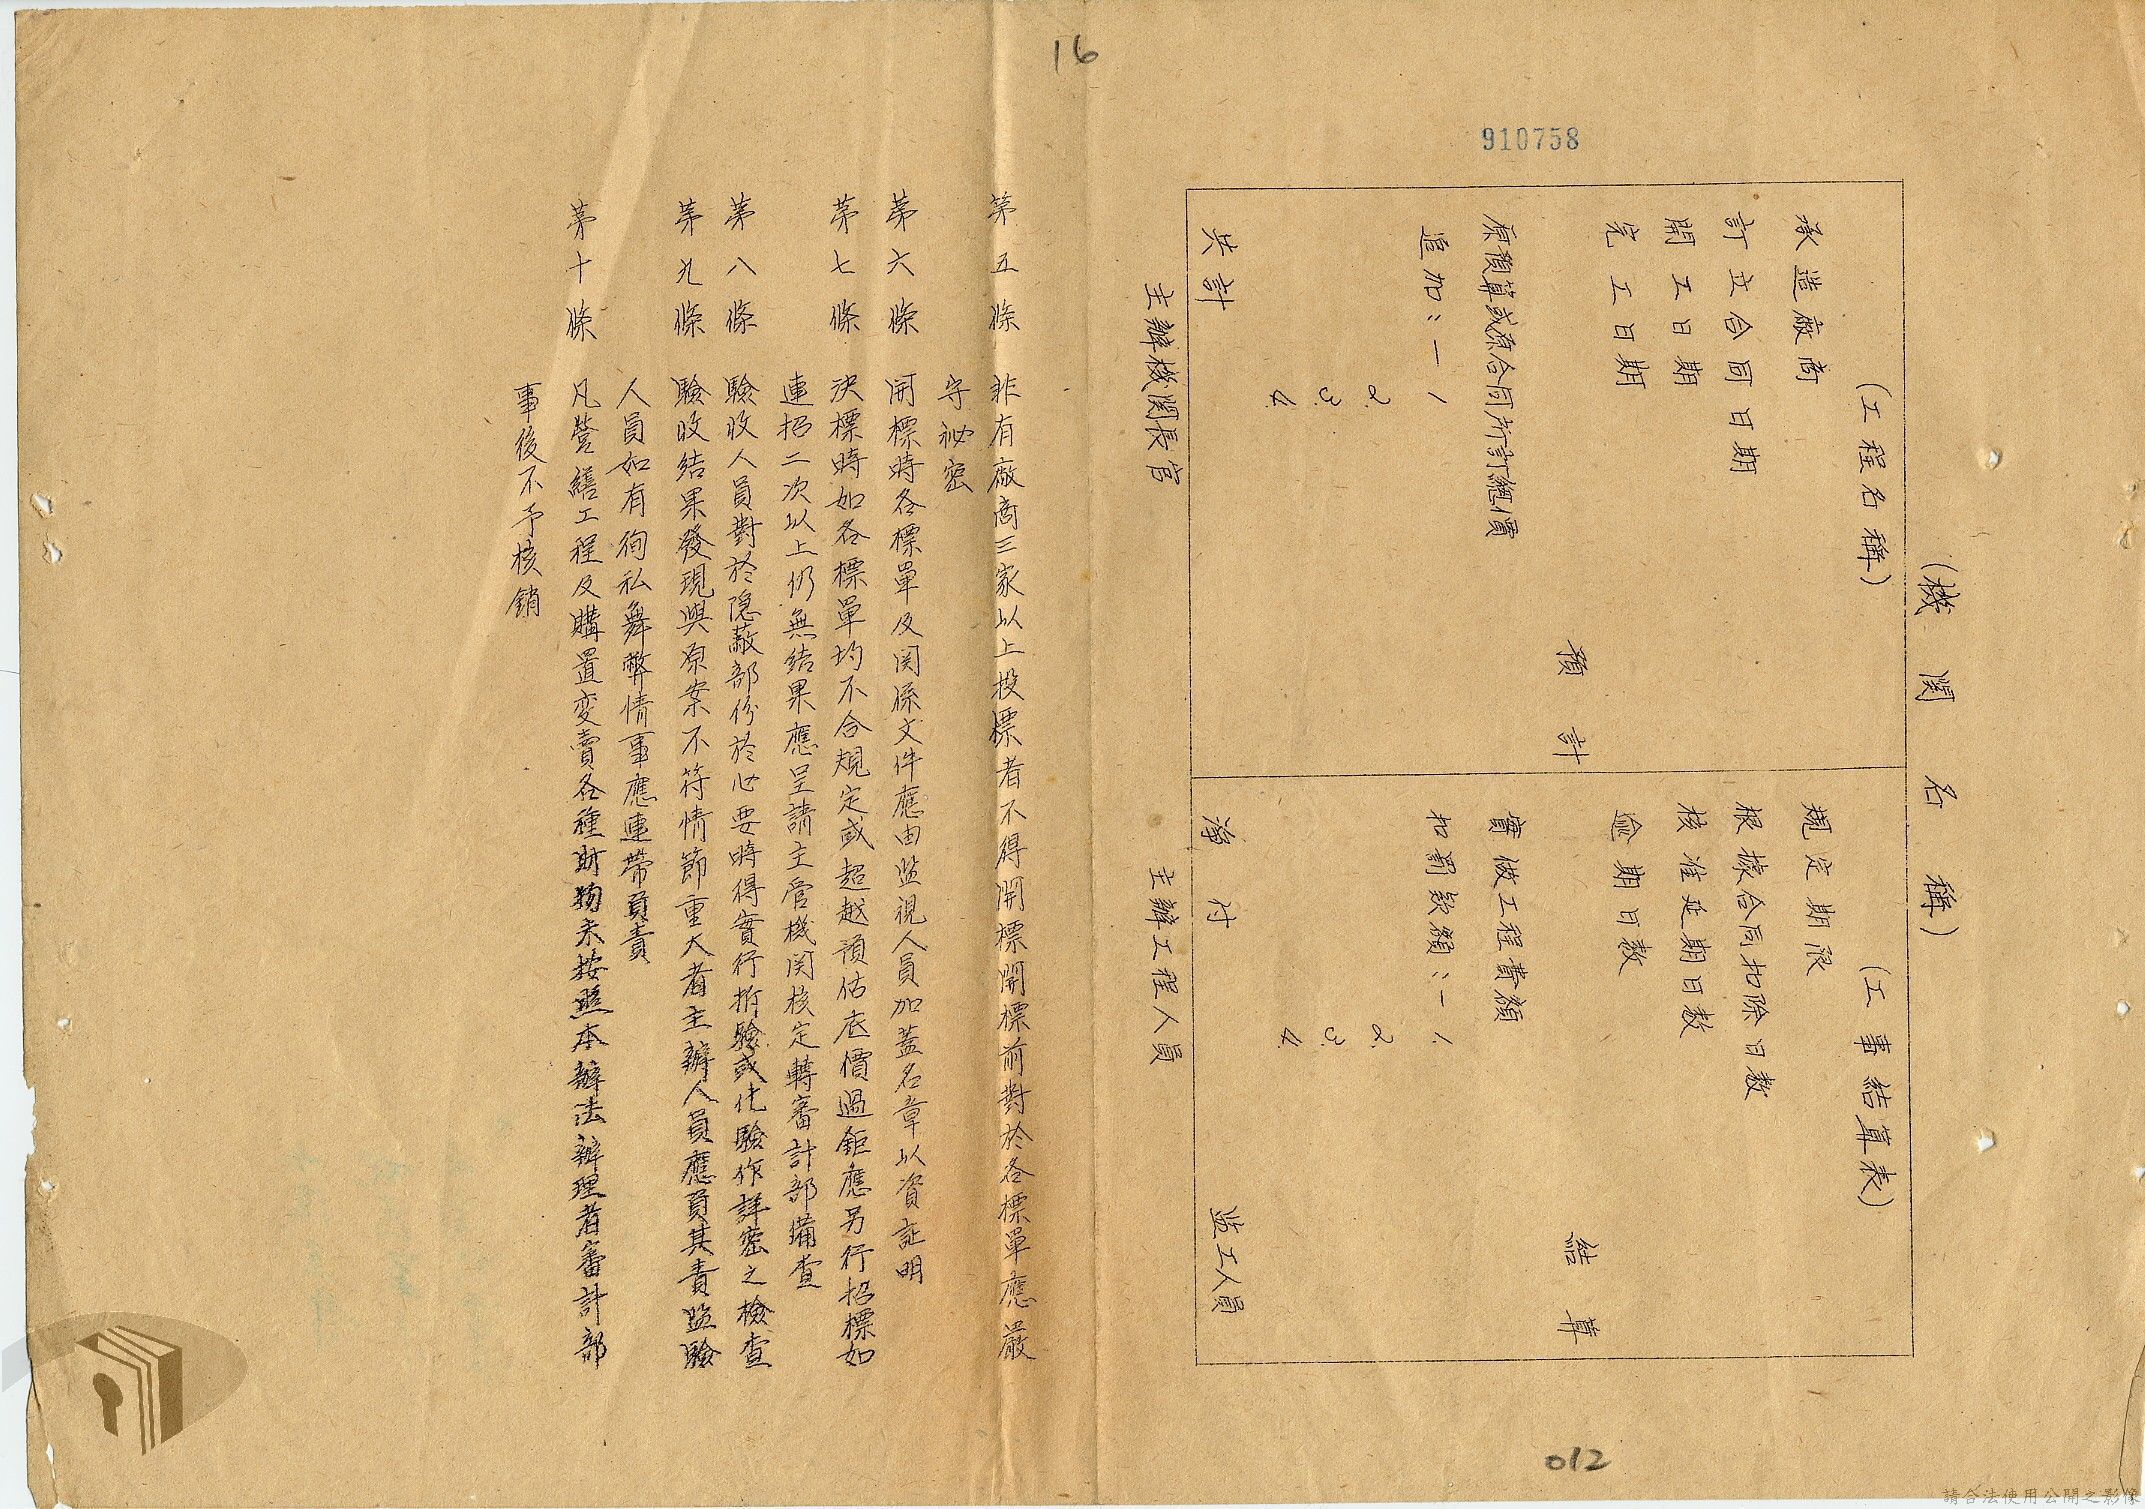 16
910758
(機関名稱)
(工程名稱)
(工事結算表)
承造廠商
規定期限
訂立合同日期
根據合同扣除日数
開工日期
核准延期日数
完工日期
逾期日数
預計
結算
原預算或原合同所訂總價
實做工程費額
追加：一 1.
扣罰款額：一 1.
2.
2.
3.
3.
4.
4.
共計
淨付
監工人員
主辦機関長官
主辦工程人員
第五條 非有廠商三家以上投標者不得開標開標前對於各標單應嚴
守祕密
第六條 開標時各標單及関係文件應由監視人員加蓋名章以資証明
第七條 決標時如各標單均不合規定或超越預估底價過鉅應另行招標如
連招二次以上仍無結果應呈請主管機関核定轉審計部備查
第八條 驗收人員對於隐蔽部份於必要時得實行拆驗或化驗作詳密之檢查
第九條 驗收结果發現與原案不符情節重大者主辦人員應負其責監驗
人員如有徇私舞弊情事應連帶負責
第十條 凡營繕工程及購置变賣各種財物未按照本辦法辦理者審計部
事後不予核銷
012
請合法使用公開之影像